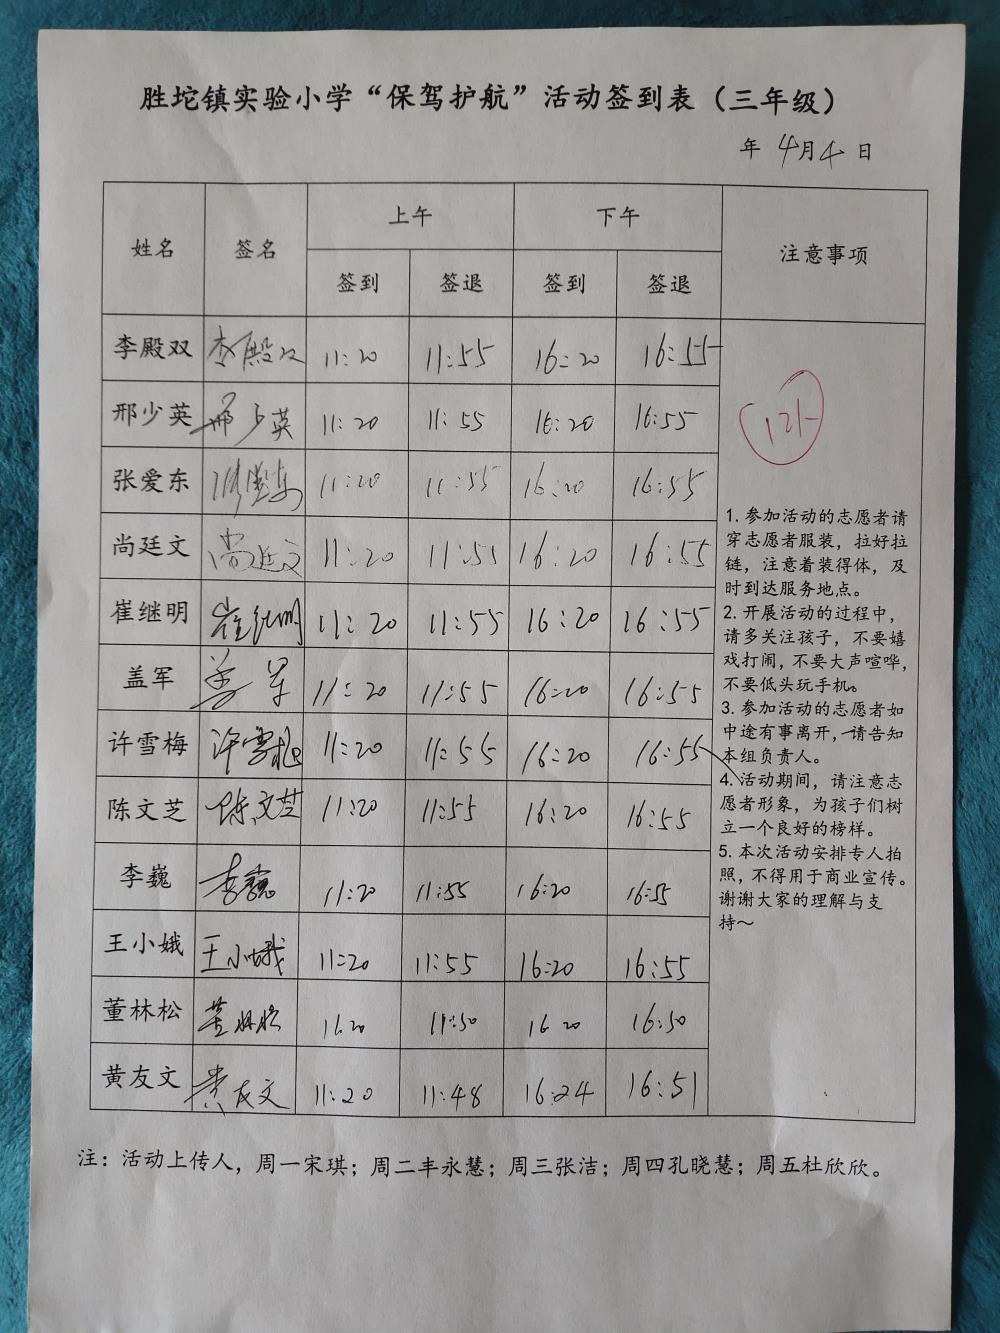 胜坨镇实验小学“保驾护航”活动签到表（三年级）
年 4月4 日
姓名 签名 上午 下午 注意事项
签到 签退 签到 签退
李殿双 李殿双 11:20 11:55 16:20 16:55
邢少英 邢少英 11:20 11:55 16:20 16:55
张爱东 张爱东 11:20 11:55 16:20 16:55
尚廷文 尚廷文 11:20 11:55 16:20 16:55
崔继明 崔继明 11:20 11:55 16:20 16:55
盖军 盖军 11:20 11:55 16:20 16:55
许雪梅 许雪梅 11:20 11:55 16:20 16:55
陈文芝 陈文芝 11:20 11:55 16:20 16:55
李巍 李巍 11:20 11:55 16:20 16:55
王小娥 王小娥 11:20 11:55 16:20 16:55
董林松 董林松 11:20 11:50 16:20 16:50
黄友文 黄友文 11:20 11:48 16:24 16:51
12人
1. 参加活动的志愿者请
穿志愿者服装，拉好拉
链，注意着装得体，及
时到达服务地点。
2. 开展活动的过程中，
请多关注孩子，不要嬉
戏打闹，不要大声喧哗，
不要低头玩手机。
3. 参加活动的志愿者如
中途有事离开，请告知
本组负责人。
4. 活动期间，请注意志
愿者形象，为孩子们树
立一个良好的榜样。
5. 本次活动安排专人拍
照，不得用于商业宣传。
谢谢大家的理解与支
持～
注：活动上传人，周一宋琪；周二丰永慧；周三张洁；周四孔晓慧；周五杜欣欣。